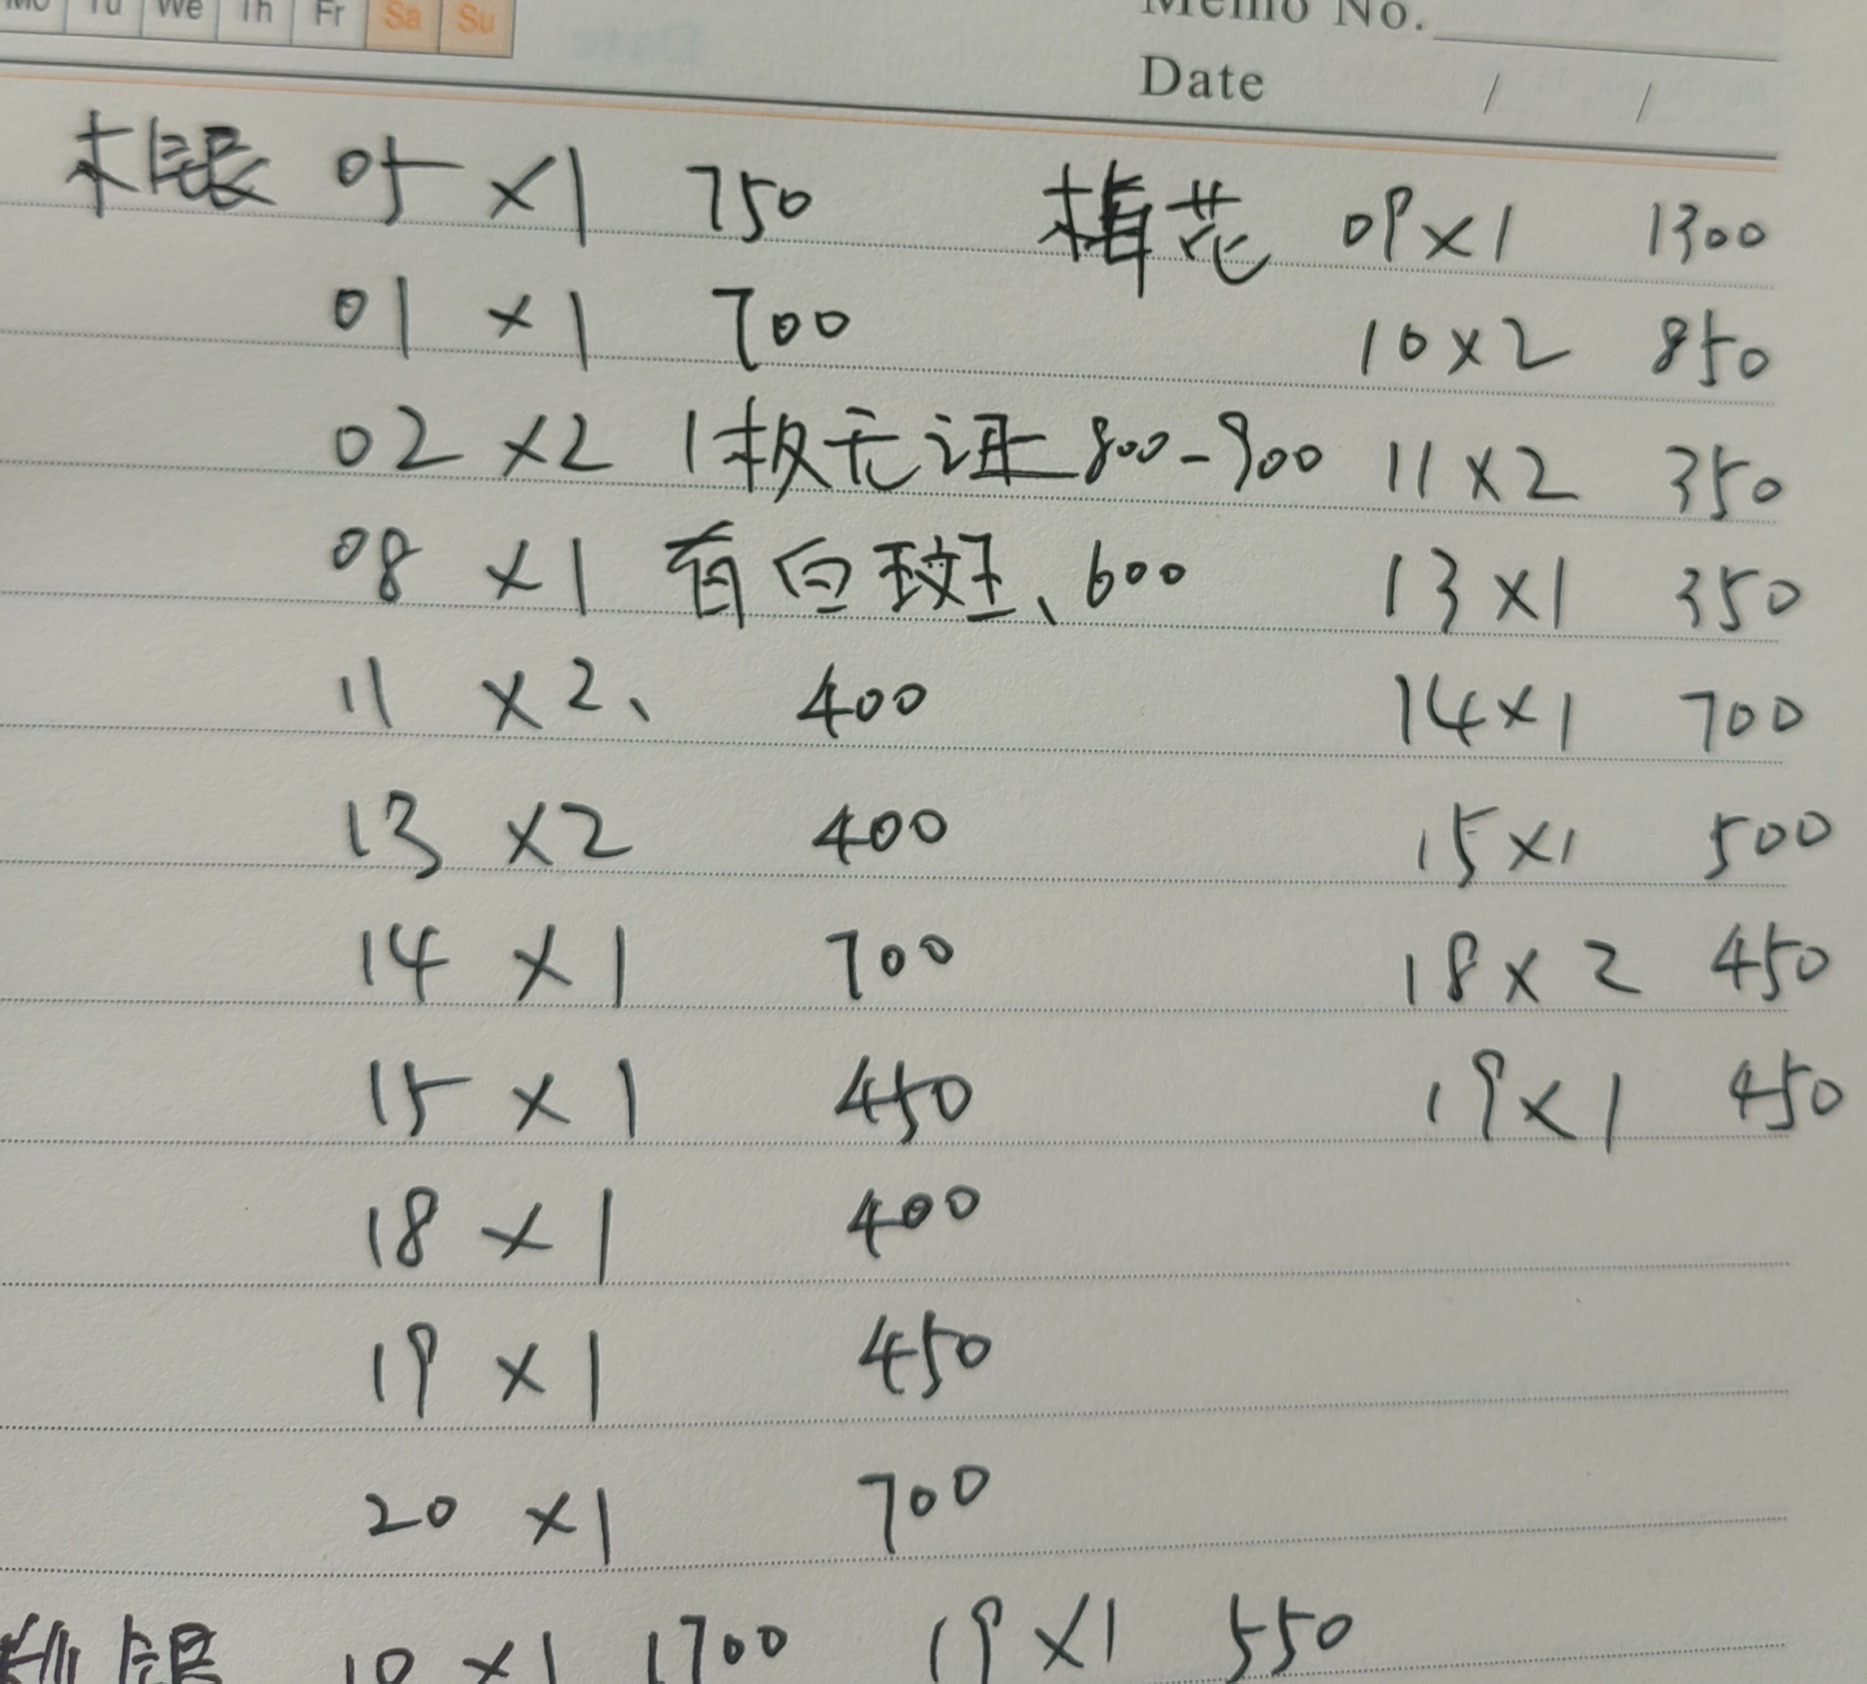 Mo Tu We Th Fr Sa Su
Memo No.
Date / /
本银 05 ×1 750
01 ×1 700
02 ×2 1枚无证 800-900
08 ×1 有白斑、600
11 ×2、 400
13 ×2 400
14 ×1 700
15 ×1 450
18 ×1 400
19 ×1 450
20 ×1 700
梅花 09×1 1300
10×2 850
11×2 350
13×1 350
14×1 700
15×1 500
18×2 450
19×1 450
银 10 ×1 1700 19 ×1 550